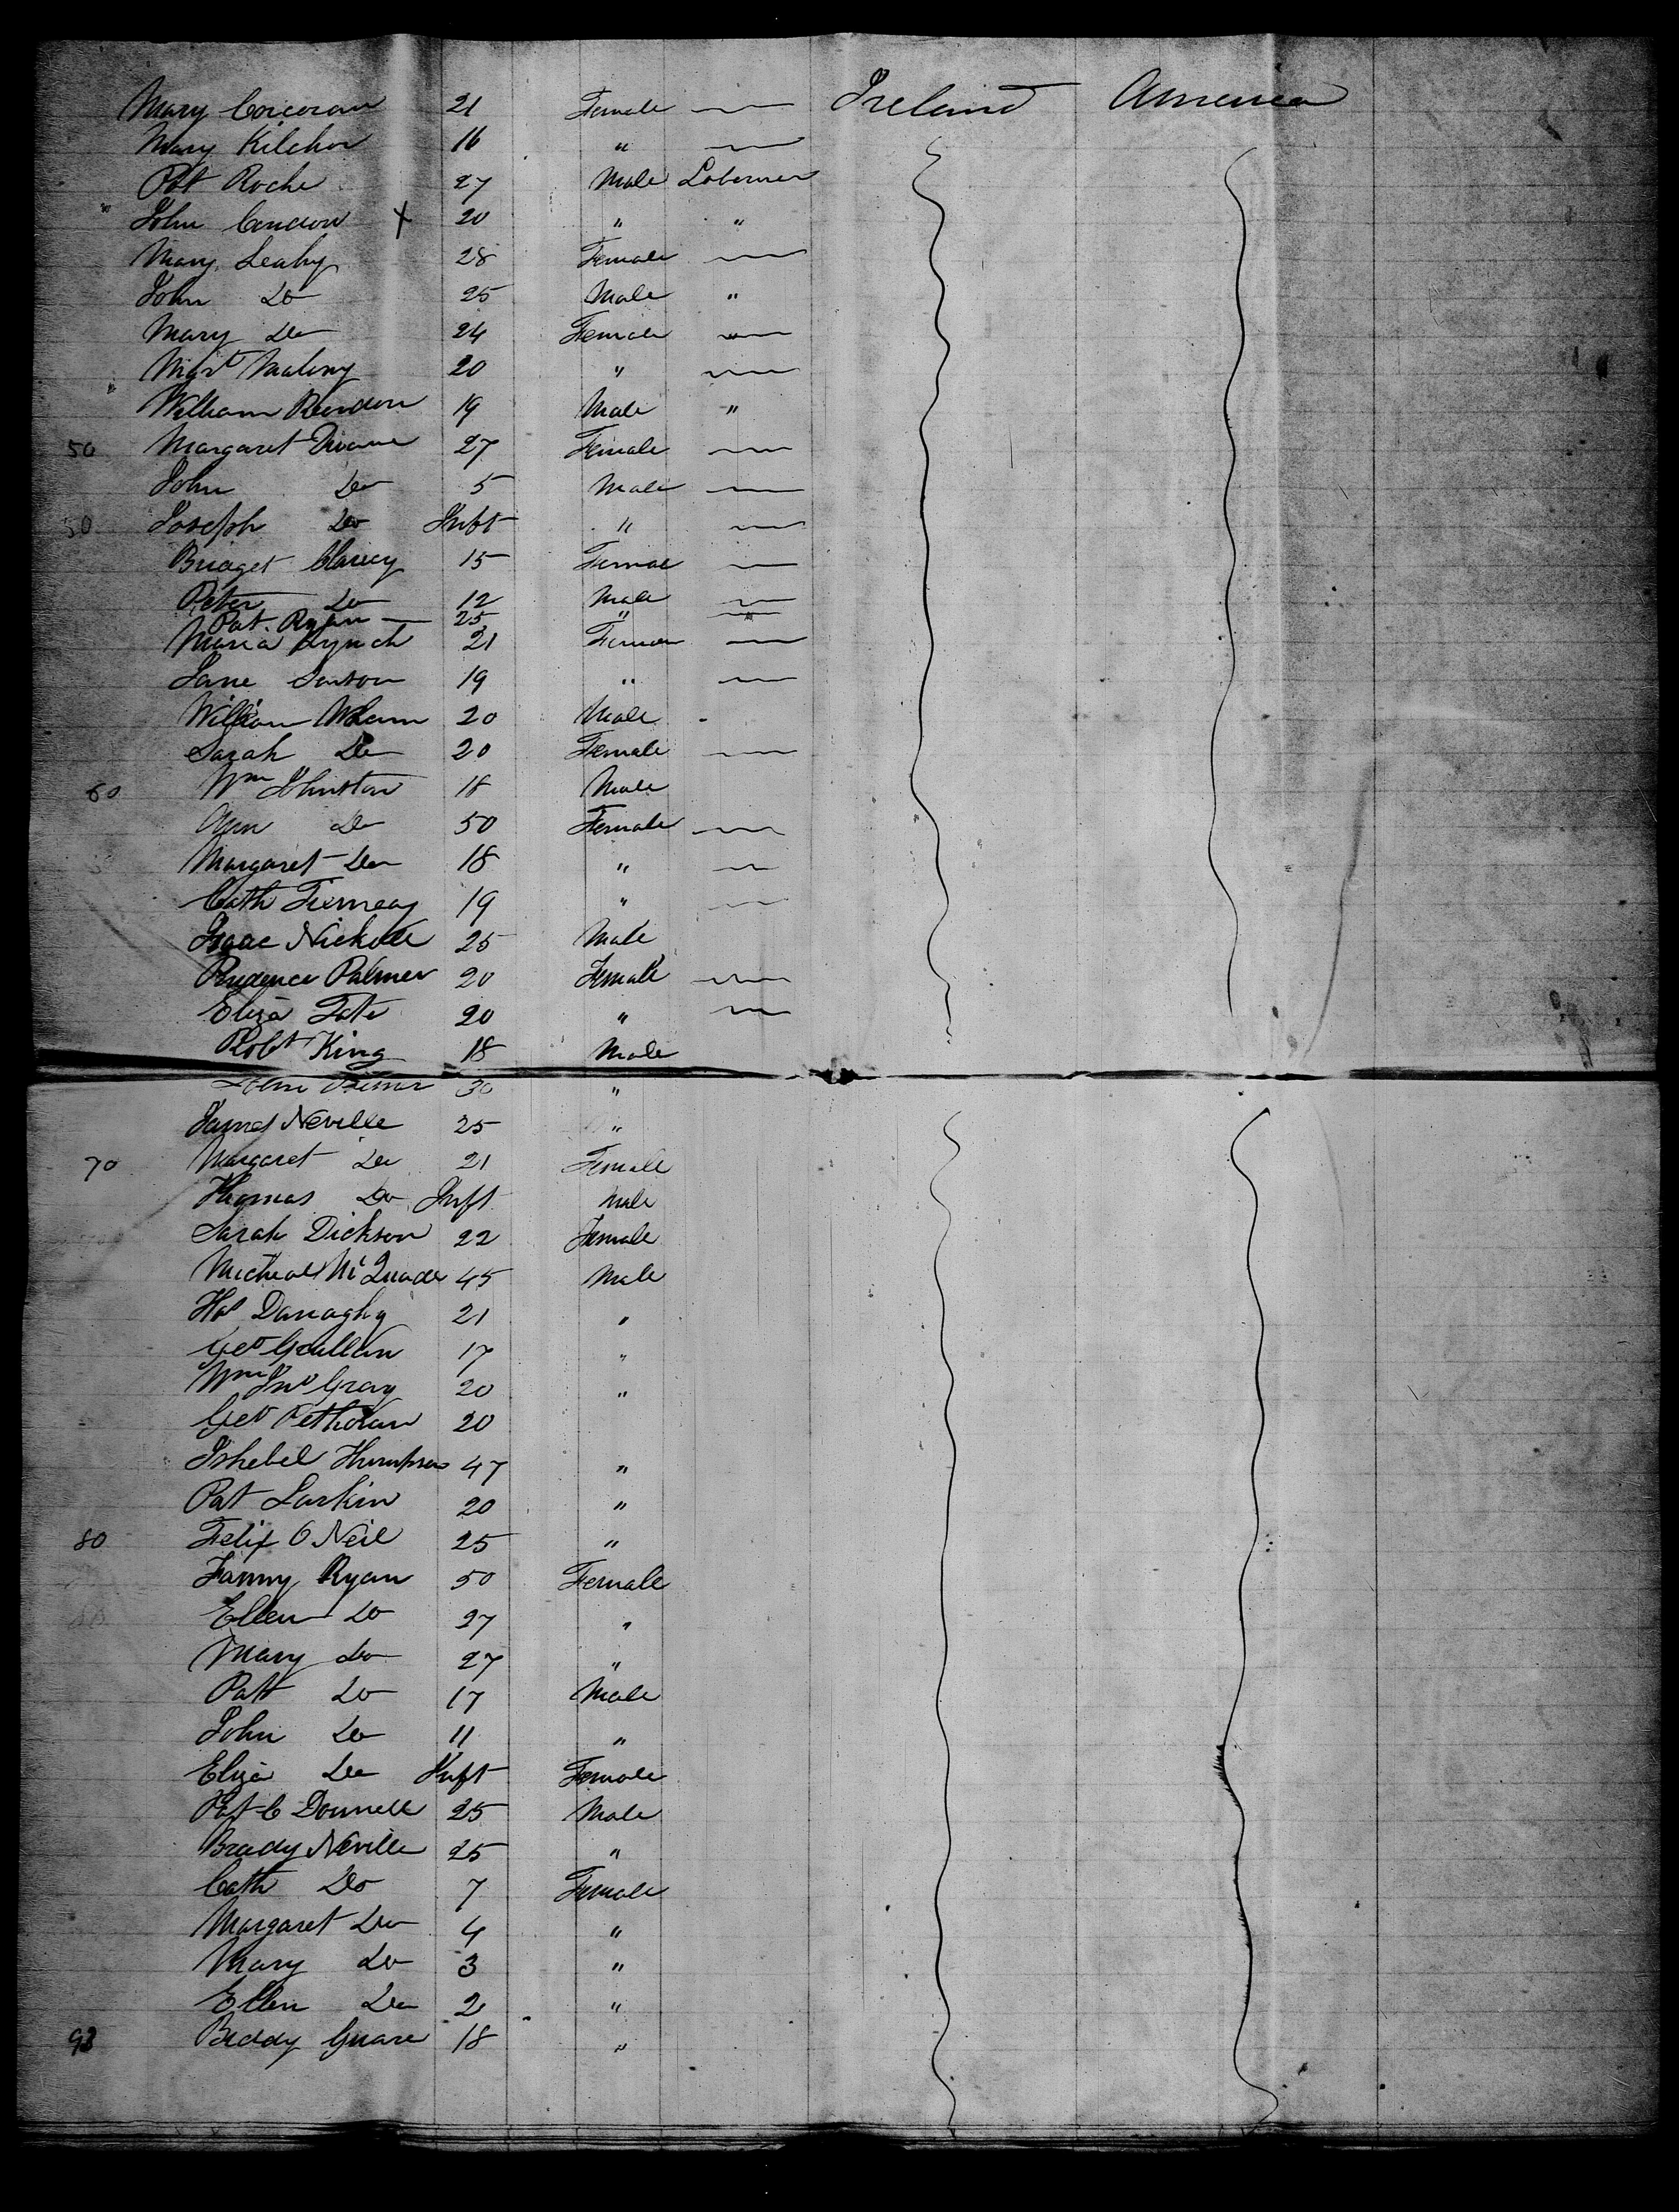 Mary Corcoran 21 Female Ireland America
Mary Kilchor 16 "
Pat Roche 27 Male Laberner
John Condon X 20 " "
Mary Leahy 28 Female
John Do 25 Male "
Mary Do 24 Female "
Margt Malony 20 "
William Reardon 19 Male "
50 Margaret 27 Female
John Do 5 Male
50 Joseph Do Inft "
Bridget Clancy 15 Female
Peter Do 12 Male
Pat. Ryan 25 " "
Maria Lynch 21 Female
Jane 19 "
William 20 Male
Sarah Do 20 Female
60 Wm Johnston 18 Male
Ann Do 50 Female
Margaret Do 18 "
Cath Tierney 19 "
Isaac Nicholl 25 Male
Prudence Palmer 20 Female
Eliza Tate 20 "
Robt King 18 Male
John 30 "
James Neville 25 "
70 Margaret Do 21 Female
Thomas Do Inft Male
Sarah Dickson 22 Female
Micheal McQuade 45 Male
Danaghy 21 "
Geo Grallan 17 "
Wm Jno Gray 20 "
Geo 20
Ishebel 47 "
Pat Larkin 20 "
80 Felix O Neil 25 "
Fanny Ryan 50 Female
Ellen Do 27 "
Mary do 27 "
Patt Do 17 Male
John Do 11 "
Eliza Do Inft Female
Pat O Donnell 25 Male
Brady Neville 25 "
Cath Do 7 Female
Margaret Do 4 "
Mary do 3 "
Ellen Do 2 "
93 Biddy Guare 18 "